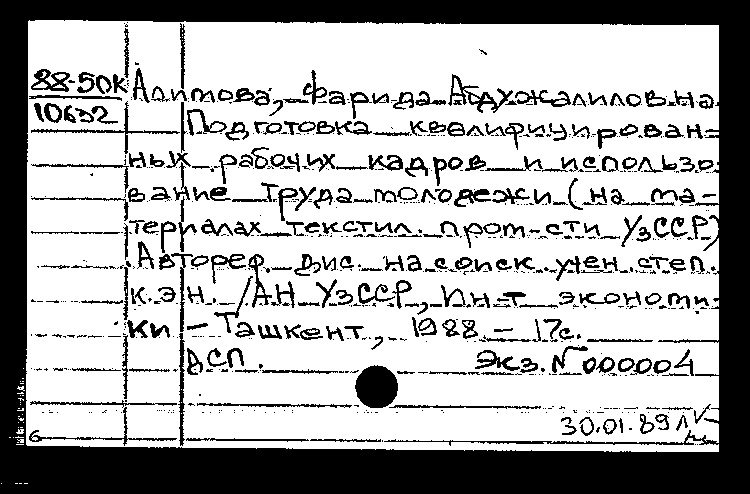 88-50К Алимова, Фарида Абдухожалиловна
10632 Подготовка квалифицирован-
ных рабочих кадров и использо-
вание труда молодежи (на ма-
териалах текстил. пром-сти УзССР)
Автореф. дис. на соиск. учен. степ.
к. э. н. /АН УзССР, Ин-т экономи-
ки - Ташкент, 1988 - 17с.
ДСП. Экз. № 000004
30.01.89
6